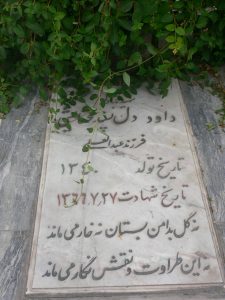 داود دل
فرزند عبدالله
تاریخ تولد ۱۳۴۰
تاریخ شهادت ۱۳۶۱/۷/۲۷
نه گل بدامن بستان نه خار می ماند
نه این طراوت و نقش نگار می ماند